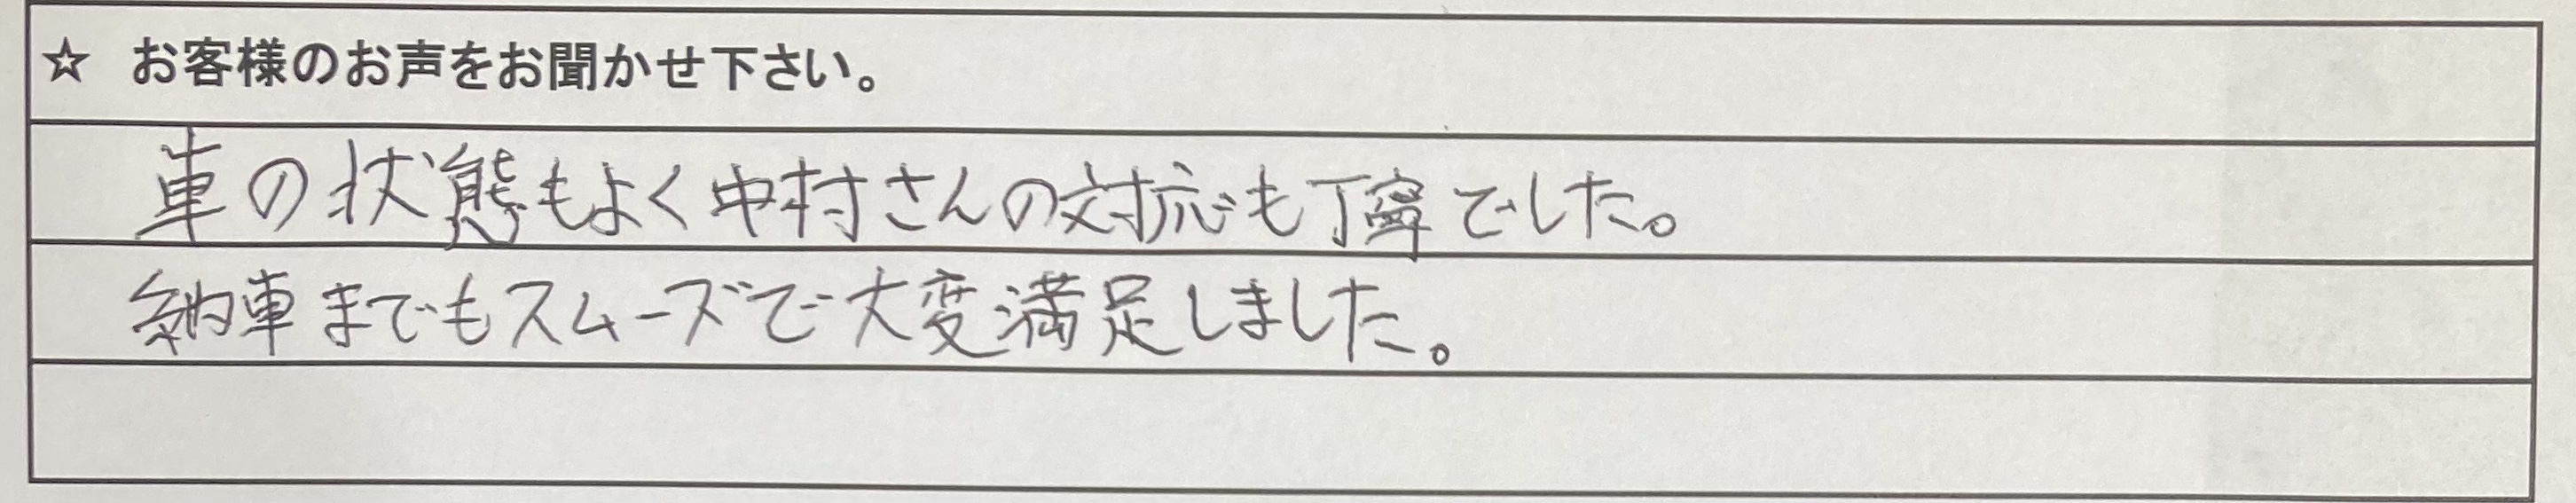 ☆ お客様のお声をお聞かせ下さい。
車の状態もよく中村さんの対応も丁寧でした。
納車までもスムーズで大変満足しました。